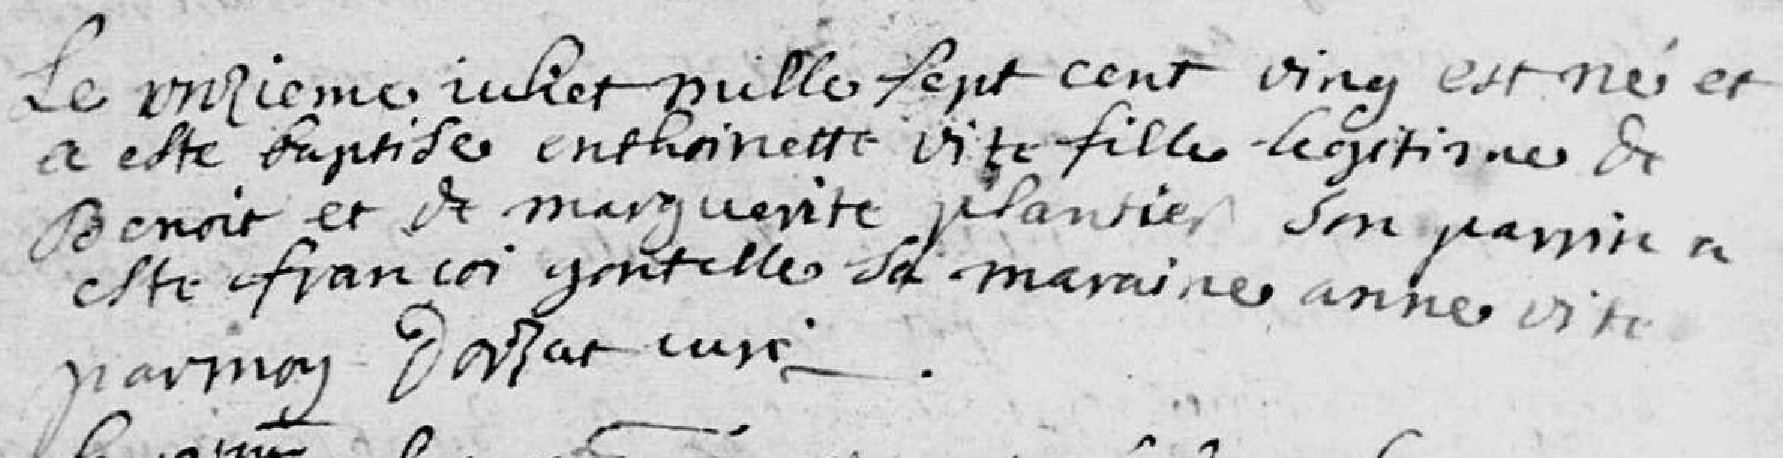 Le onzieme iuliet mille sept cent ving est né et
a este baptise enthoinette vite fille legitime de
Benoit et de marguerite plantier son parrin a
este francoi gontelle sa maraine anne vite
parmoy Dorzat curé